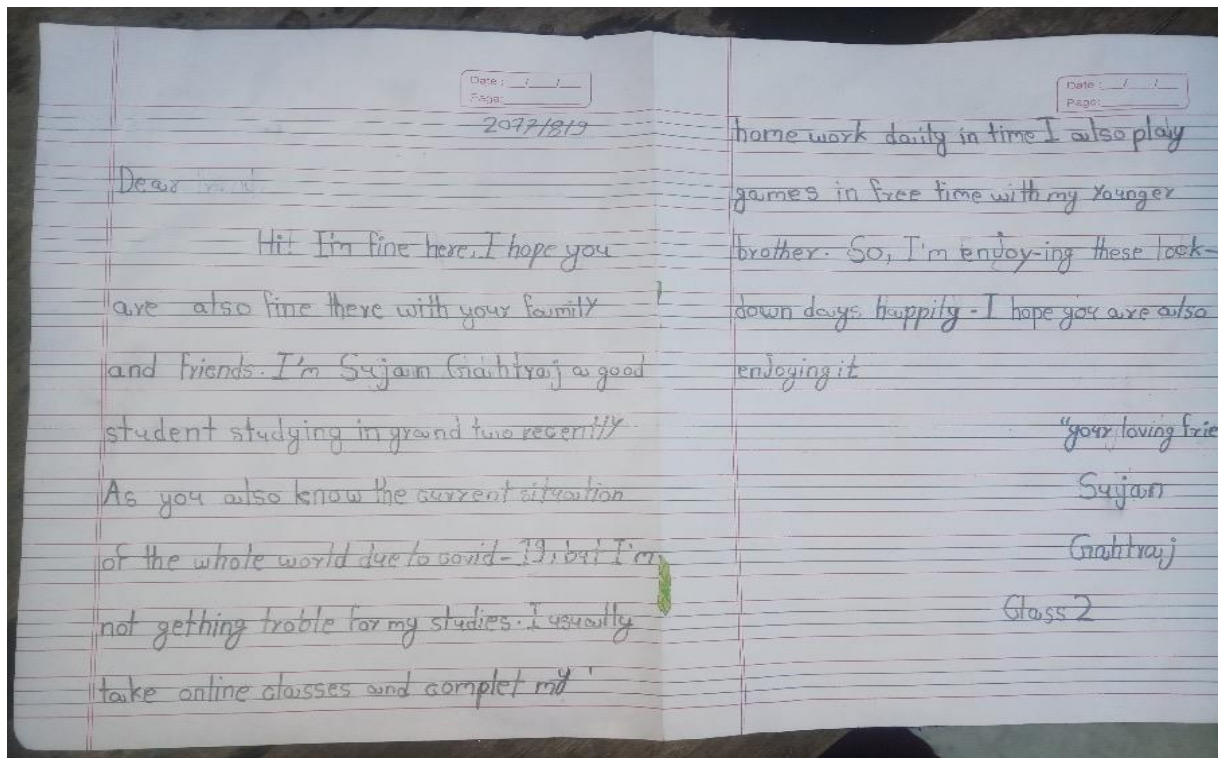 Date: __/__/__
Page:
2077/8/9
Dear
Hi! I'm fine here, I hope you
are also fine there with your family
and friends. I'm Sujan Gahtraj a good
student studying in grand two recently
As you also know the current situation
of the whole world due to covid-19, but I'm
not gething troble for my studies. I usually
take online classes and complet my
Date: __/__/__
Page:
home work daily in time I also play
games in free time with my younger
brother. So, I'm enjoy-ing these lock-
down days happily. I hope you are also
enjoying it
"your loving frie
Sujan
Gahtraj
Class 2